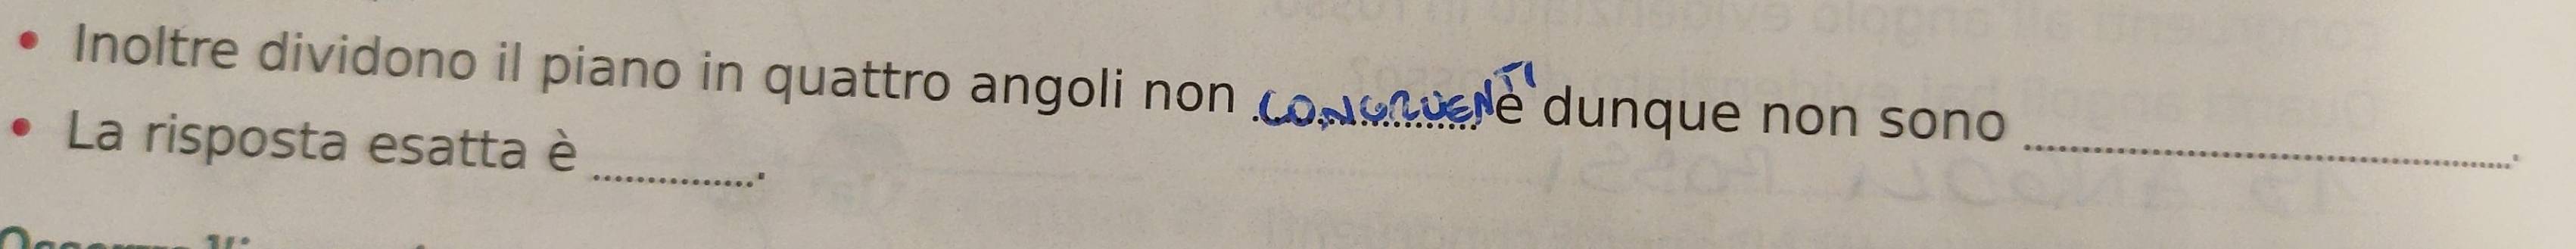 • Inoltre dividono il piano in quattro angoli non CONGRUENTI e dunque non sono ....................
• La risposta esatta è ...............